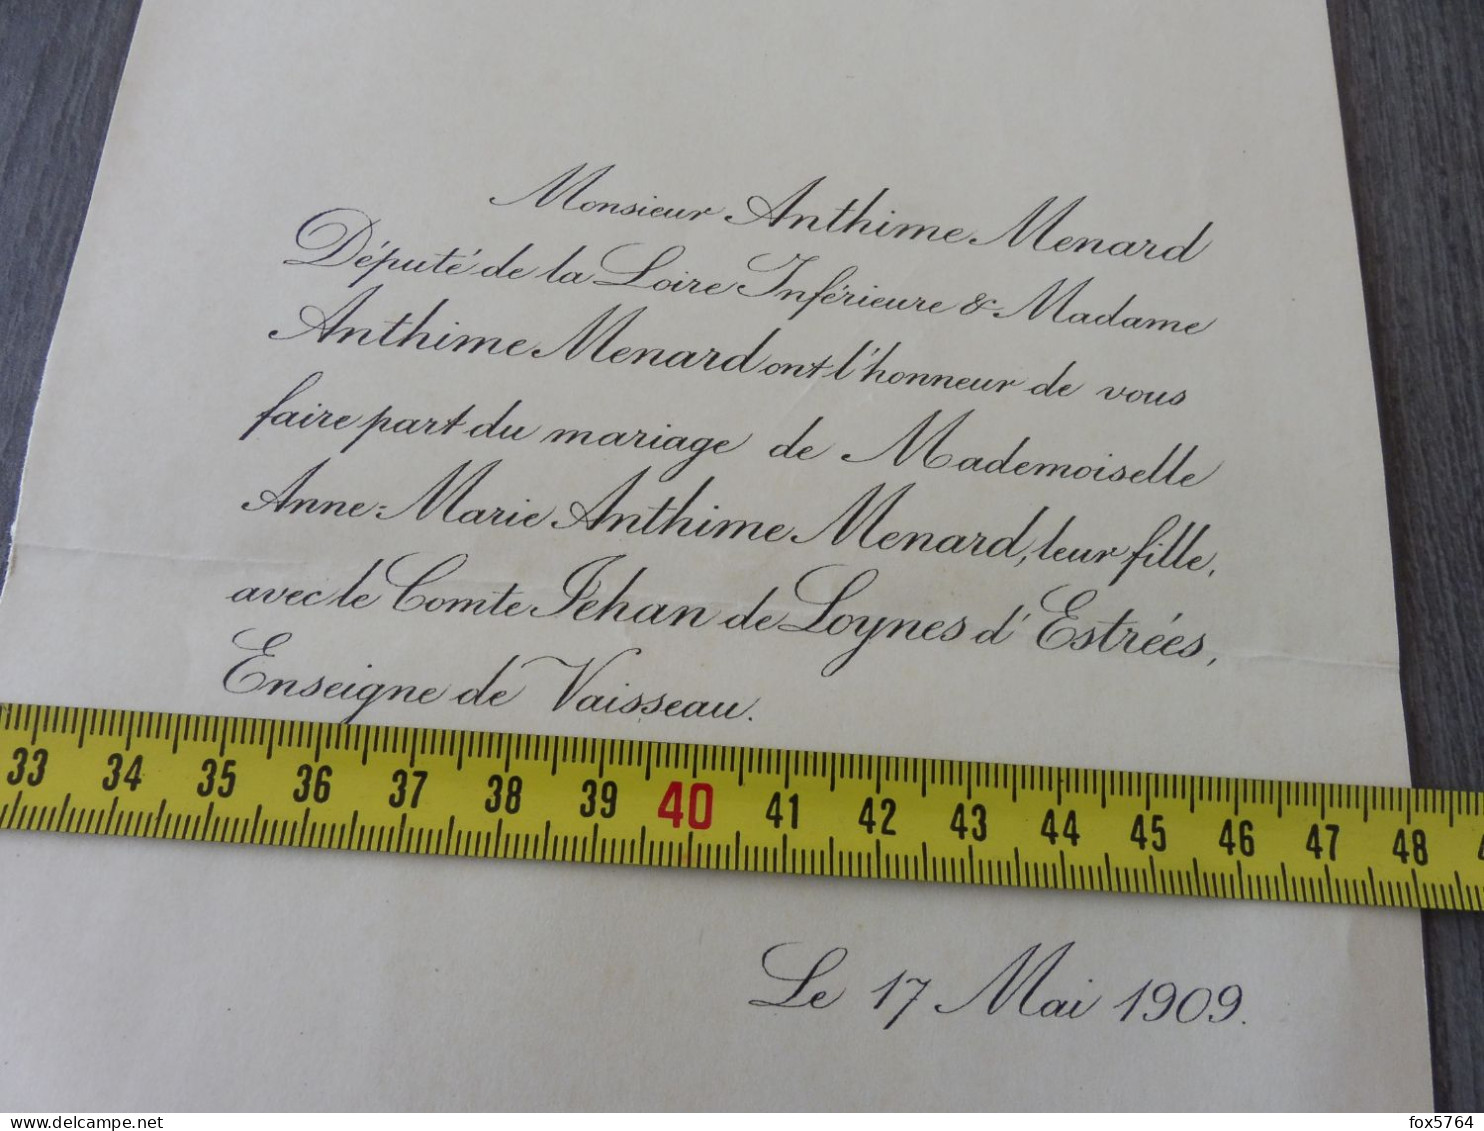 Monsieur Anthime Menard
Député de la Loire Inférieure & Madame
Anthime Menard ont l'honneur de vous
faire part du mariage de Mademoiselle
Anne-Marie Anthime Menard, leur fille,
avec le Comte Jehan de Loynes d'Estrées,
Enseigne de Vaisseau.
33 34 35 36 37 38 39 40 41 42 43 44 45 46 47 48
Le 17 Mai 1909.
delcampe.net
fox5764